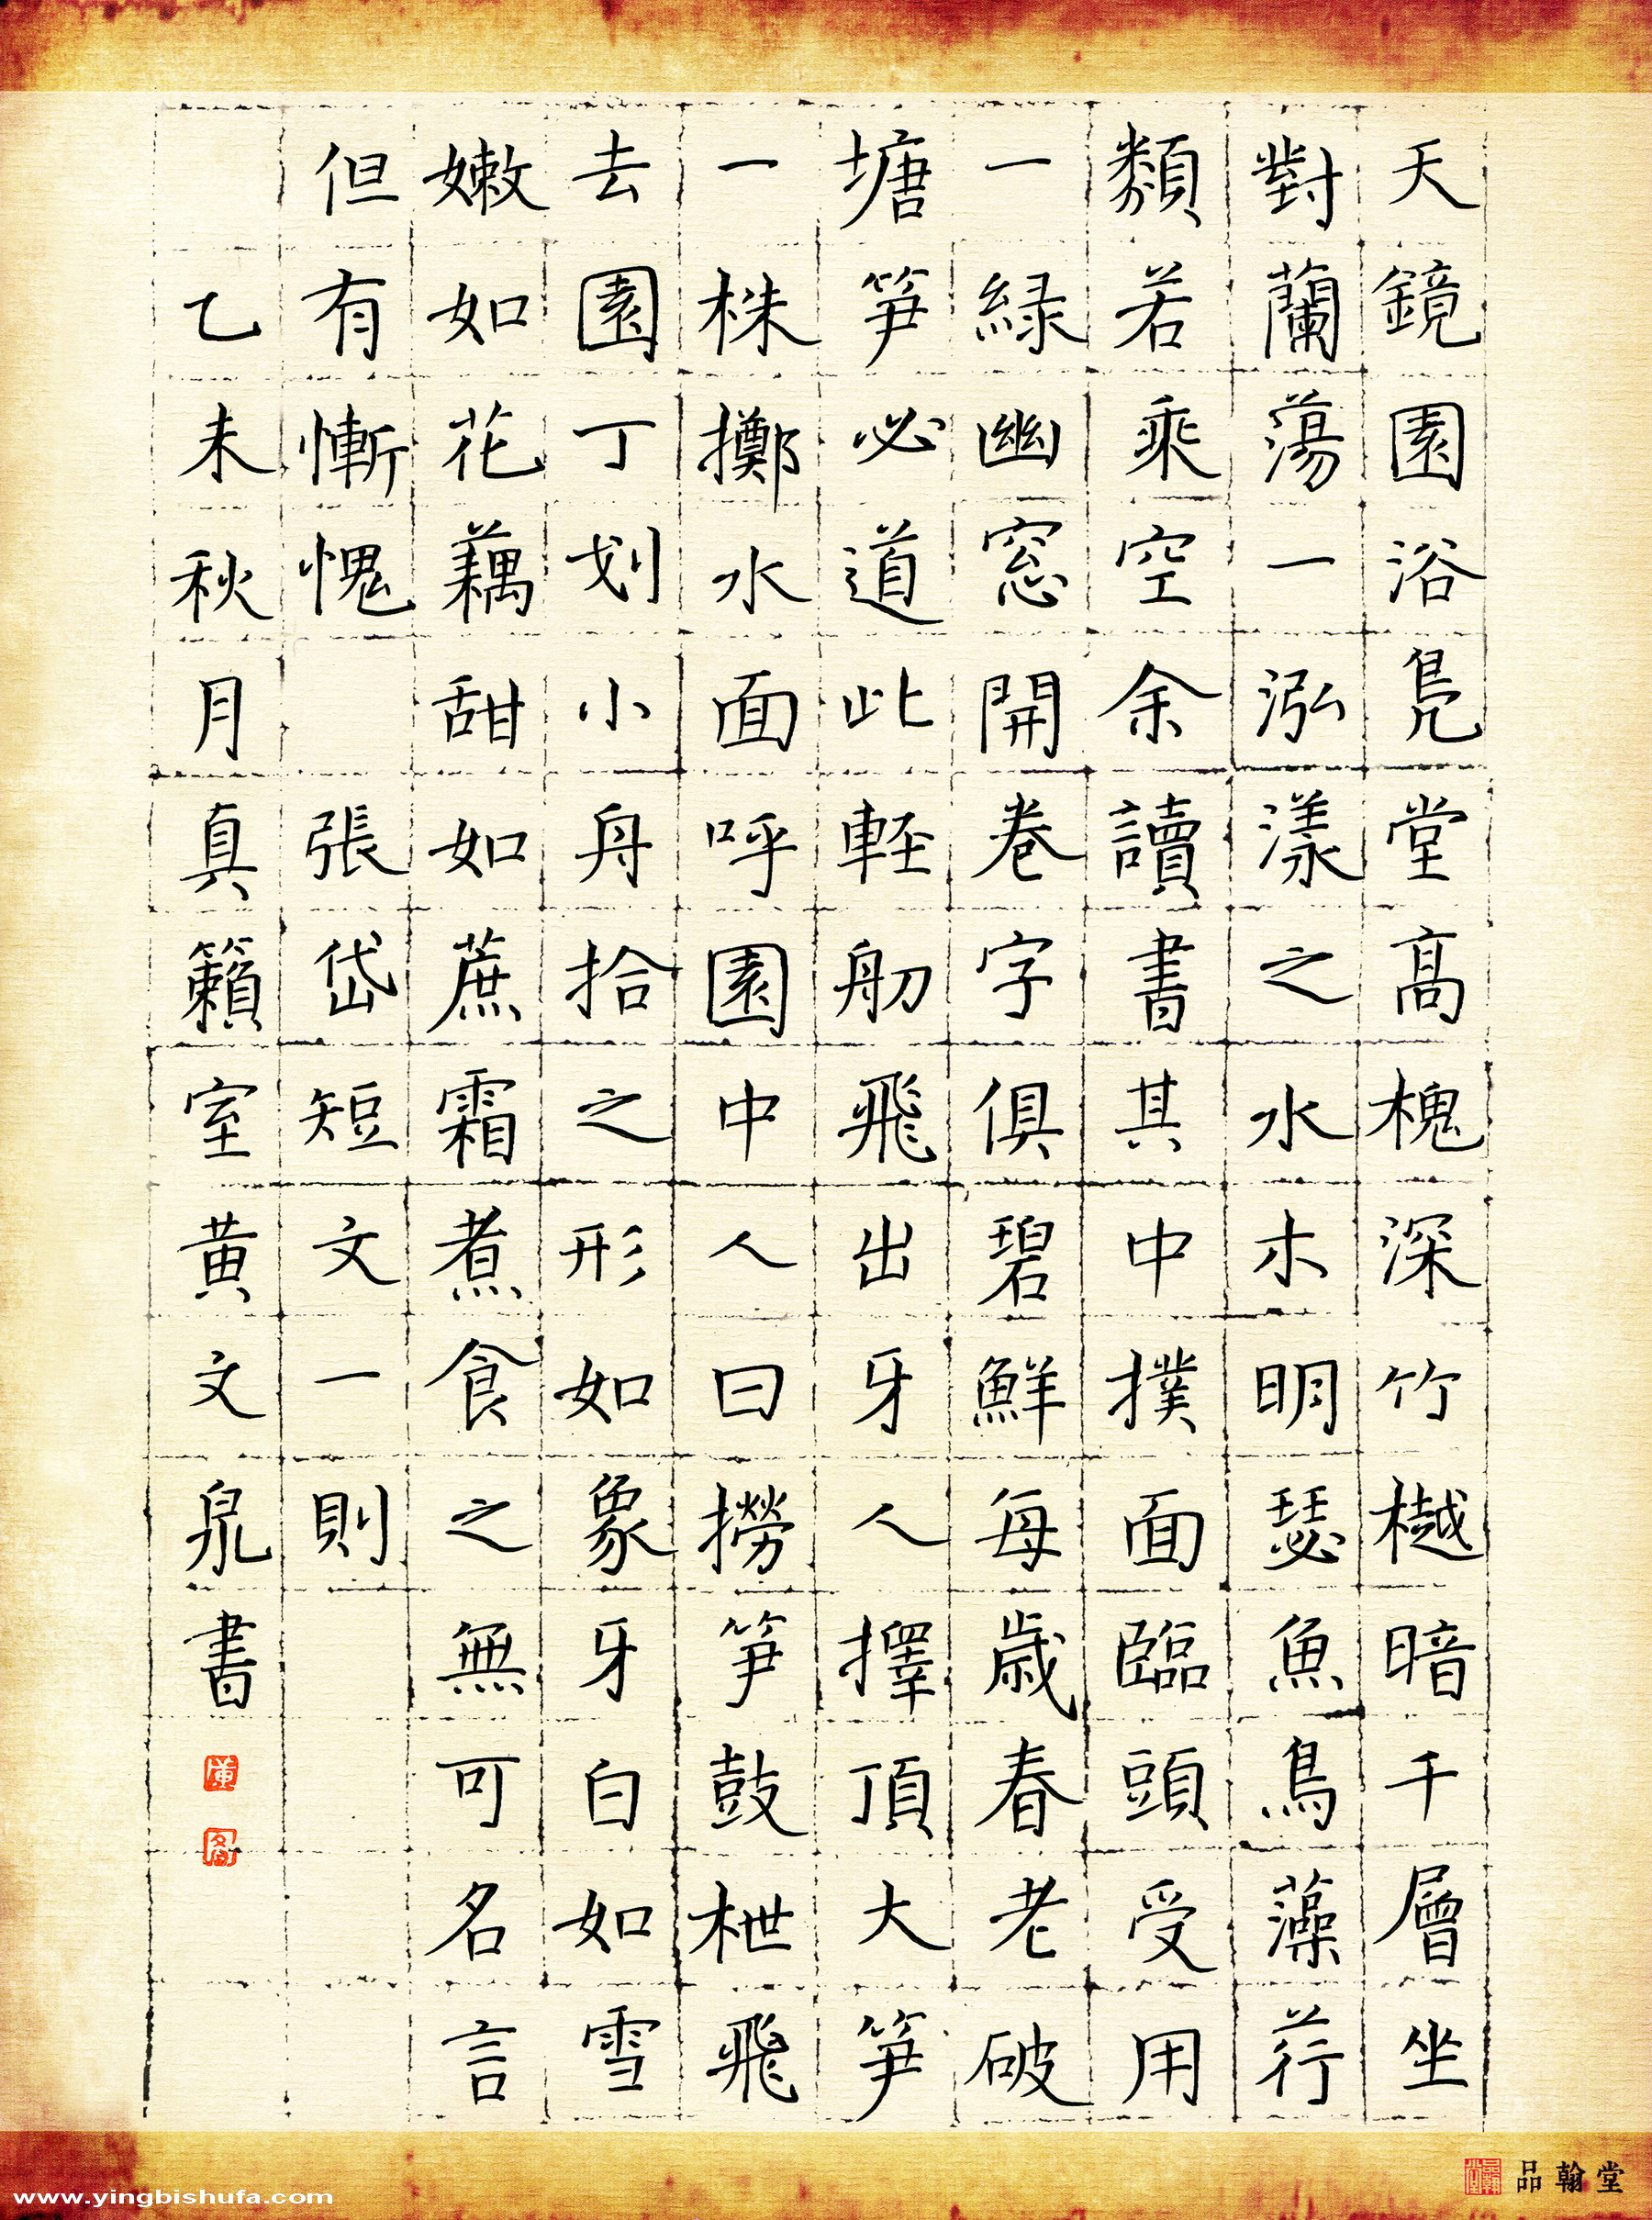 天鏡園浴鳧堂高槐深竹樾暗千層坐
對蘭蕩一泓漾之水木明瑟魚鳥藻荇
類若乘空余讀書其中撲面臨頭受用
一綠幽窓開卷字俱碧鮮每歲春老破
塘筍必道此輕舠飛出牙人擇頂大筍
一株擲水面呼園中人曰撈筍鼓枻飛
去園丁划小舟拾之形如象牙白如雪
嫩如花藕甜如蔗霜煮食之無可名言
但有慚愧 張岱短文一則
乙未秋月真籟室黃文泉書
品翰堂
www.yingbishufa.com